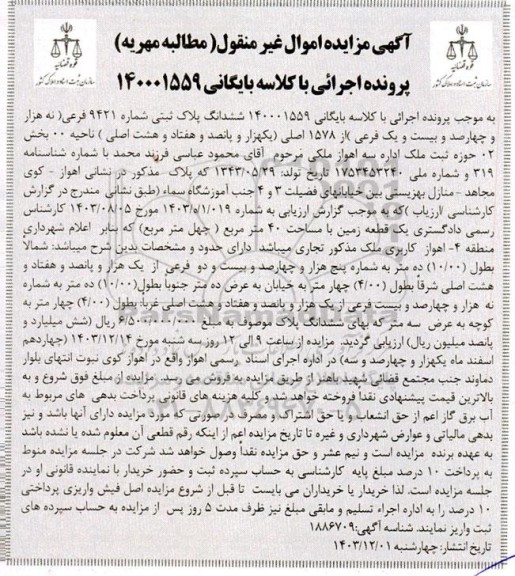 آگهی مزایده اموال غیر منقول( مطالبه مهریه)
پرونده اجرائی با کلاسه بایگانی ۱۴۰۰۰۱۵۵۹
قوه قضائیه
سازمان ثبت اسناد و املاک کشور
قوه قضائیه
سازمان ثبت اسناد و املاک کشور
به موجب پرونده اجرائی با کلاسه بایگانی ۱۴۰۰۰۱۵۵۹ ششدانگ پلاک ثبتی شماره ۹۴۲۱ فرعی( نه هزار
و چهارصد و بیست و یک فرعی )از ۱۵۷۸ اصلی (یکهزار و پانصد و هفتاد و هشت اصلی ) ناحیه ۰۰ بخش
۰۲ حوزه ثبت ملک اداره یک اهواز ملکی مرحوم آقای محمود عباسی فرزند محمد با شماره شناسنامه
۳۱۹ و شماره ملی ۱۷۵۳۴۵۳۲۴۰ تاریخ تولد: ۱۳۴۳/۰۵/۲۹ که پلاک مذکور در نشانی اهواز - کوی
مجاهد -منازل بهزیستی بین خیابانهای فضیلت ۳ و ۴ جنب آموزشگاه سماء (طبق نشانی مندرج در گزارش
کارشناسی /ارزیاب )که به موجب گزارش ارزیابی به شماره ۱۴۰۳/۵/۱/۰۱۹ مورخ ۱۴۰۳/۰۸/۰۵ کارشناس
رسمی دادگستری یک قطعه زمین با مساحت ۴۰ متر مربع ( چهل متر مربع) که برابر اعلام شهرداری
منطقه ۴- اهواز کاربری ملک مذکور تجاری میباشد دارای حدود و مشخصات بدین شرح میباشد: شمالا
بطول (۱۰/۰۰) ده متر به شماره پنج هزار و چهارصد و بیست و دو فرعی از یک هزار و پانصد و هفتاد و
هشت اصلی شرقا بطول (۴/۰۰) چهار متر به خیابان به عرض ده متر جنوبا بطول(۱۰/۰۰) ده متر به شماره
نه هزار و چهارصد و بیست فرعی از یک هزار و پانصد و هفتاد و هشت اصلی غربا بطول (۴/۰۰) چهار متر به
کوچه به عرض سه متر که بهای ششدانگ پلاک موصوف به مبلغ ۶/۵۰۰/۰۰۰/۰۰۰ ریال (شش میلیارد و
پانصد میلیون ریال) ارزیابی گردید. مزایده از ساعت ۹ الی ۱۲ روز سه شنبه مورخ ۱۴۰۳/۱۲/۱۴ (چهاردهم
اسفند ماه یکهزار و چهارصد و سه) در اداره اجرای اسناد رسمی اهواز واقع در اهواز کوی نبوت انتهای بلوار
دماوند جنب مجتمع قضائی شهید باهنر از طریق مزایده به فروش می رسد. مزایده از مبلغ فوق شروع و به
بالاترین قیمت پیشنهادی نقدا فروخته خواهد شد و کلیه هزینه های قانونی پرداخت بدهی های مربوط به
آب برق گاز اعم از حق انشعاب و یا حق اشتراک و مصرف در صورتی که مورد مزایده دارای آنها باشد و نیز
بدهی مالیاتی و عوارض شهرداری و غیره تا تاریخ مزایده اعم از اینکه رقم قطعی آن معلوم شده یا نشده باشد
به عهده برنده مزایده است و نیم عشر و حق مزایده نقدا وصول خواهد شد شرکت در جلسه مزایده منوط
به پرداخت ۱۰ درصد مبلغ پایه کارشناسی به حساب سپرده ثبت و حضور خریدار یا نماینده قانونی او در
جلسه مزایده است. لذا خریدار یا خریداران می بایست تا قبل از شروع مزایده اصل فیش واریزی پرداختی
۱۰ درصد را به اداره اجراء تسلیم و مابقی مبلغ نیز ظرف مدت ۵ روز پس از مزایده به حساب سپرده های
ثبت واریز نمایند. شناسه آگهی:۱۸۸۶۷۰۹
تاریخ انتشار: چهارشنبه ۱۴۰۳/۱۲/۰۱